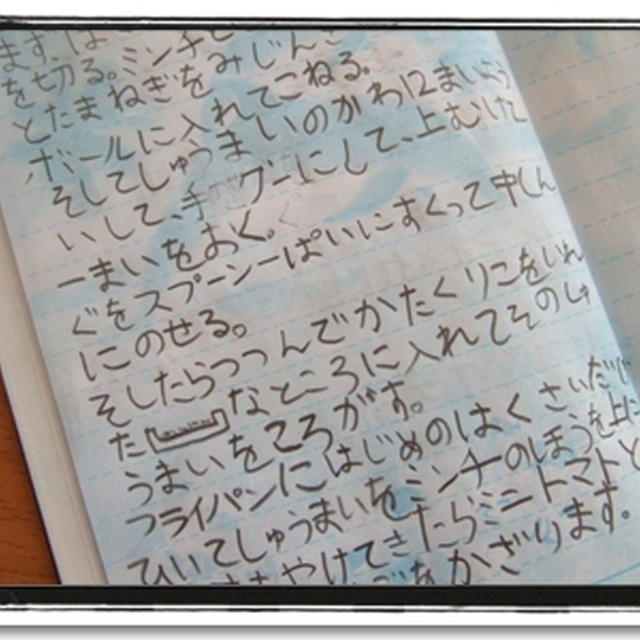 ます。は
を切る。ミンチと
とたまねぎをみじんぎ
ボールに入れてこねる。
そしてしゅうまいのかわ12まいよう
いして、手 グーにして、上むけた
一まいをおく。
ぐをスプーン一ぱいにすくって中しん
にのせる。
そしたらつつんでかたくりこをいれ
た なところに入れてそのしゅ
うまいをころがす。
フライパンにはじめのはくさいだし
ひいてしゅうまいをミンチのほうを上に
やけてきたらミニトマトと
をかざります。